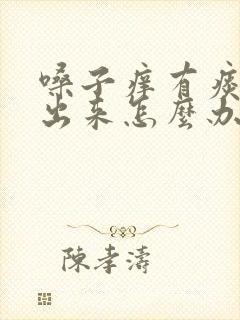 嗓子痒有痰
出来怎麼办
陳孝濤